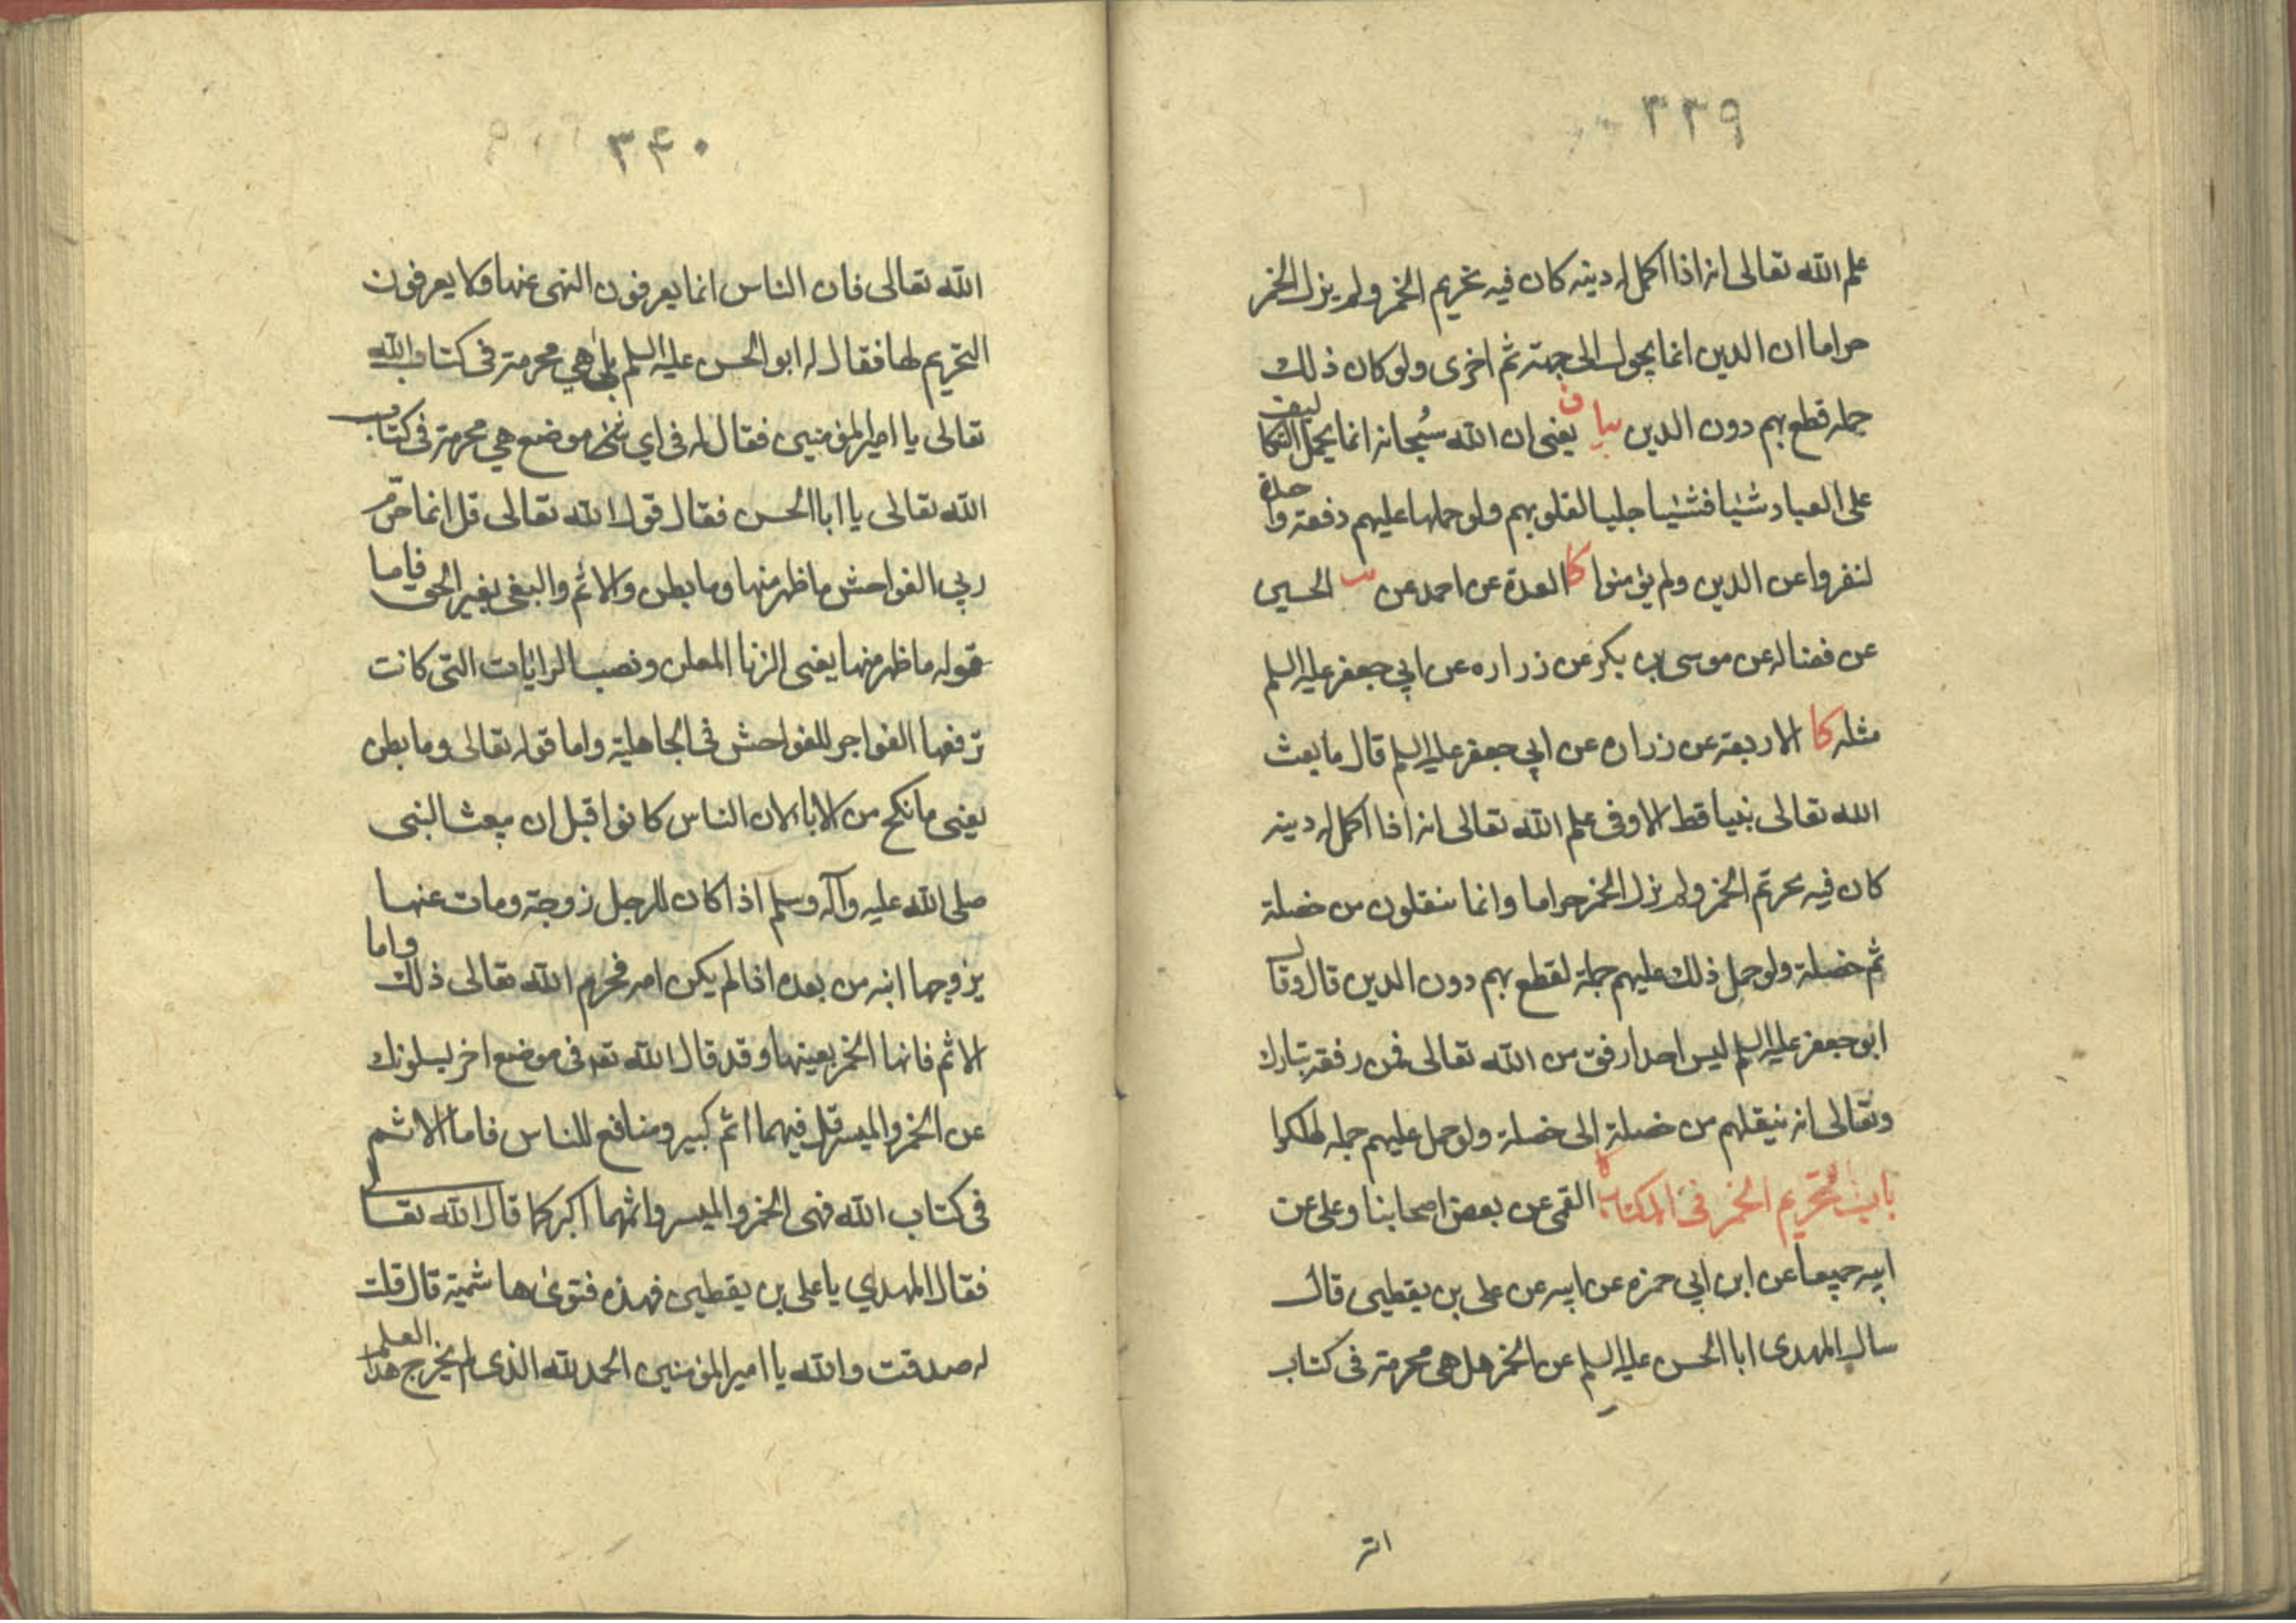 ٣٣٩
علم الله تعالى انه اذا اكمل له دينه كان فيه تحريم الخمر ولم يزل الخمر
حراما ان الدين انما يحول الى جهة ثم اخرى ولو كان ذلك
جمله قطع بهم دون الدين بيان يعنى ان الله سُبحانه انما يحمل التكاليف
على العباد شيئا فشيئا جلبا لقلوبهم ولو حملها عليهم دفعة واحدة
لنفروا عن الدين ولم يؤمنوا كا العدة عن احمد عن الحسين
عن فضاله عن موسى بن بكر عن زراره عن ابي جعفر عليه السلم
مثله كا الاربعة عن زراره عن ابي جعفر عليه السلم قال ما بعث
الله تعالى نبيا قط الا وفى علم الله تعالى انه اذا اكمل له دينه
كان فيه تحريم الخمر ولم يزل الخمر حراما وانما ينقلون من خصلة
ثم خصلة ولو حمل ذلك عليهم جملة لقطع بهم دون الدين قال وقال
ابو جعفر عليه السلم ليس احد ارفق من الله تعالى فمن رفقه تبارك
وتعالى انه ينقلهم من خصلة الى خصلة ولو حمل عليهم جمله لهلكوا
باب تحريم الخمر فى الكتاب كا القمى عن بعض اصحابنا وعلى عن
ابيه جميعا عن ابن ابي حمزه عن ابيه عن على بن يقطين قال
سال المهدى ابا الحسن عليه السلم عن الخمر هل هى محرمة فى كتاب
٣٤٠
الله تعالى فان الناس انما يعرفون النهى عنها ولا يعرفون
التحريم لها فقال له ابو الحسن عليه السلم بلى هي محرمة فى كتاب الله
تعالى يا امير المؤمنين فقال له فى اي موضع هي محرمة فى كتاب
الله تعالى يا ابا الحسن فقال قول الله تعالى قل انما حرّم
ربي الفواحش ما ظهر منها وما بطن والاثم والبغى بغير الحق فاما
قوله ما ظهر منها يعنى الزنا المعلن ونصب الرايات التى كانت
ترفعها الفواجر للفواحش فى الجاهلية واما قوله تعالى وما بطن
يعنى ما نكح من الابا لان الناس كانوا قبل ان يبعث النبى
صلى الله عليه وآله وسلم اذا كان للرجل زوجة ومات عنها
يزوجها ابنه من بعده اذا لم يكن امه فحرم الله تعالى ذلك واما
الاثم فانها الخمر بعينها وقد قال الله تعه فى موضع اخر يسلونك
عن الخمر والميسر قل فيهما اثم كبير ومنافع للناس فاما الاثم
فى كتاب الله فهى الخمر والميسر واثمهما اكبر كما قال الله تعالى
فقال المهدي يا على بن يقطين فهذه فتوى هاشمية قال قلت
له صدقت والله يا امير المؤمنين الحمد لله الذى لم يخرج هذا العلم